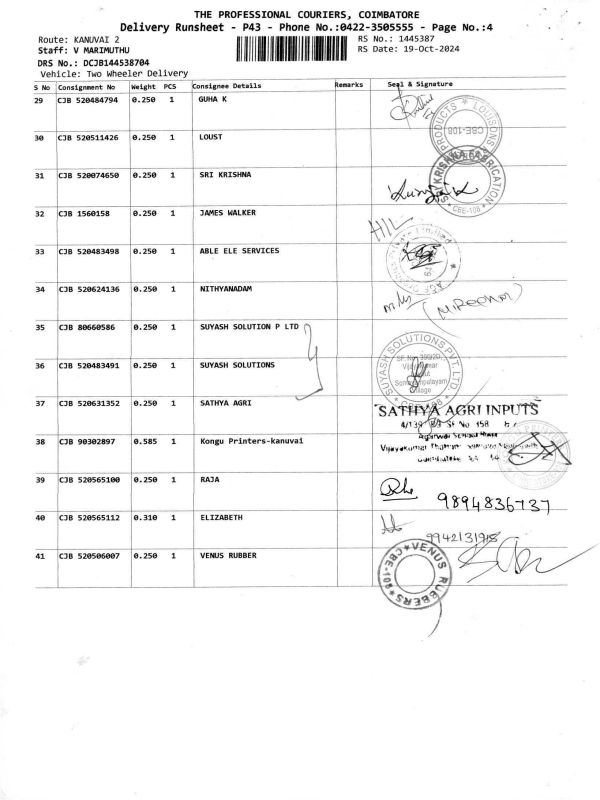 THE PROFESSIONAL COURIERS, COIMBATORE
Delivery Runsheet - P43 - Phone No.:0422-3505555 - Page No.:4
Route: KANUVAI 2
RS No.: 1445387
Staff: V MARIMUTHU
RS Date: 19-Oct-2024
DRS No.: DCJB144538704
Vehicle: Two Wheeler Delivery
S No Consignment No Weight PCS Consignee Details Remarks Seal & Signature
29 CJB 520484794 0.250 1 GUHA K
30 CJB 520511426 0.250 1 LOUST
PRODUCTS CBE-108
31 CJB 520074650 0.250 1 SRI KRISHNA
KRISHNA FABRICATION CBE-108
32 CJB 1560158 0.250 1 JAMES WALKER
33 CJB 520483498 0.250 1 ABLE ELE SERVICES
34 CJB 520624136 0.250 1 NITHYANADAM
35 CJB 80660586 0.250 1 SUYASH SOLUTION P LTD
36 CJB 520483491 0.250 1 SUYASH SOLUTIONS
SUYASH SOLUTIONS PVT. LTD
37 CJB 520631352 0.250 1 SATHYA AGRI
SATHYA AGRI INPUTS
38 CJB 90302897 0.585 1 Kongu Printers-kanuvai
39 CJB 520565100 0.250 1 RAJA
9894836737
40 CJB 520565112 0.310 1 ELIZABETH
41 CJB 520506007 0.250 1 VENUS RUBBER
VENUS RUBBERS CBE-108